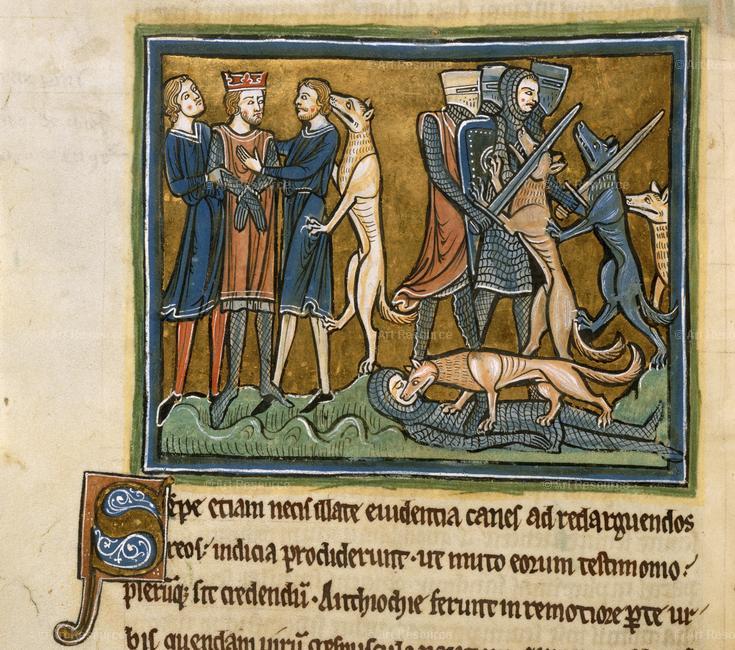 Sepe etiam necis illate euidentia canes ad redarguendos
reos: indicia prodiderunt · ut muto eorum testimonio:
plerūq; sit credendū · Antiochie ferunt in remotiore ꝑte ur
bis quendam uirū crepusculo
© Art Resource